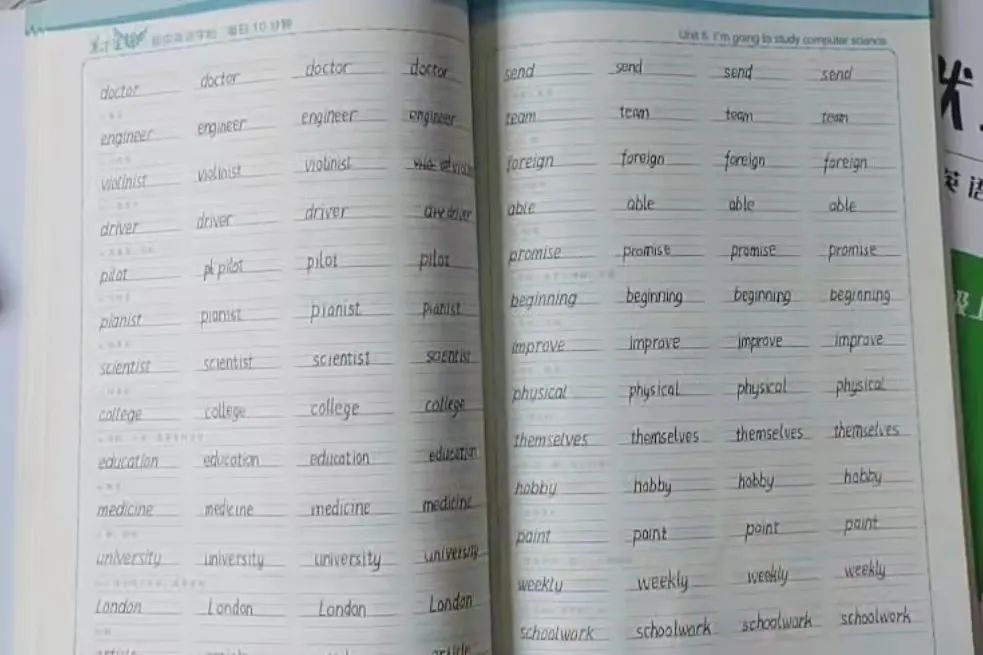 每日10分钟
doctor doctor doctor doctor
engineer engineer engineer engineer
violinist violinist violinist
driver driver driver driver
pilot pi pilot pilot pilot
pianist pianist pianist pianist
scientist scientist scientist scientist
college college college college
education education education education
medicine medicine medicine medicine
university university university university
London London London London
article article
Unit 6 I'm going to study computer science.
send send send send
team team team team
foreign foreign foreign foreign
able able able able
promise promise promise promise
beginning beginning beginning beginning
improve improve improve improve
physical physical physical physical
themselves themselves themselves themselves
hobby hobby hobby hobby
paint paint paint paint
weekly weekly weekly weekly
schoolwork schoolwork schoolwork schoolwork
英语